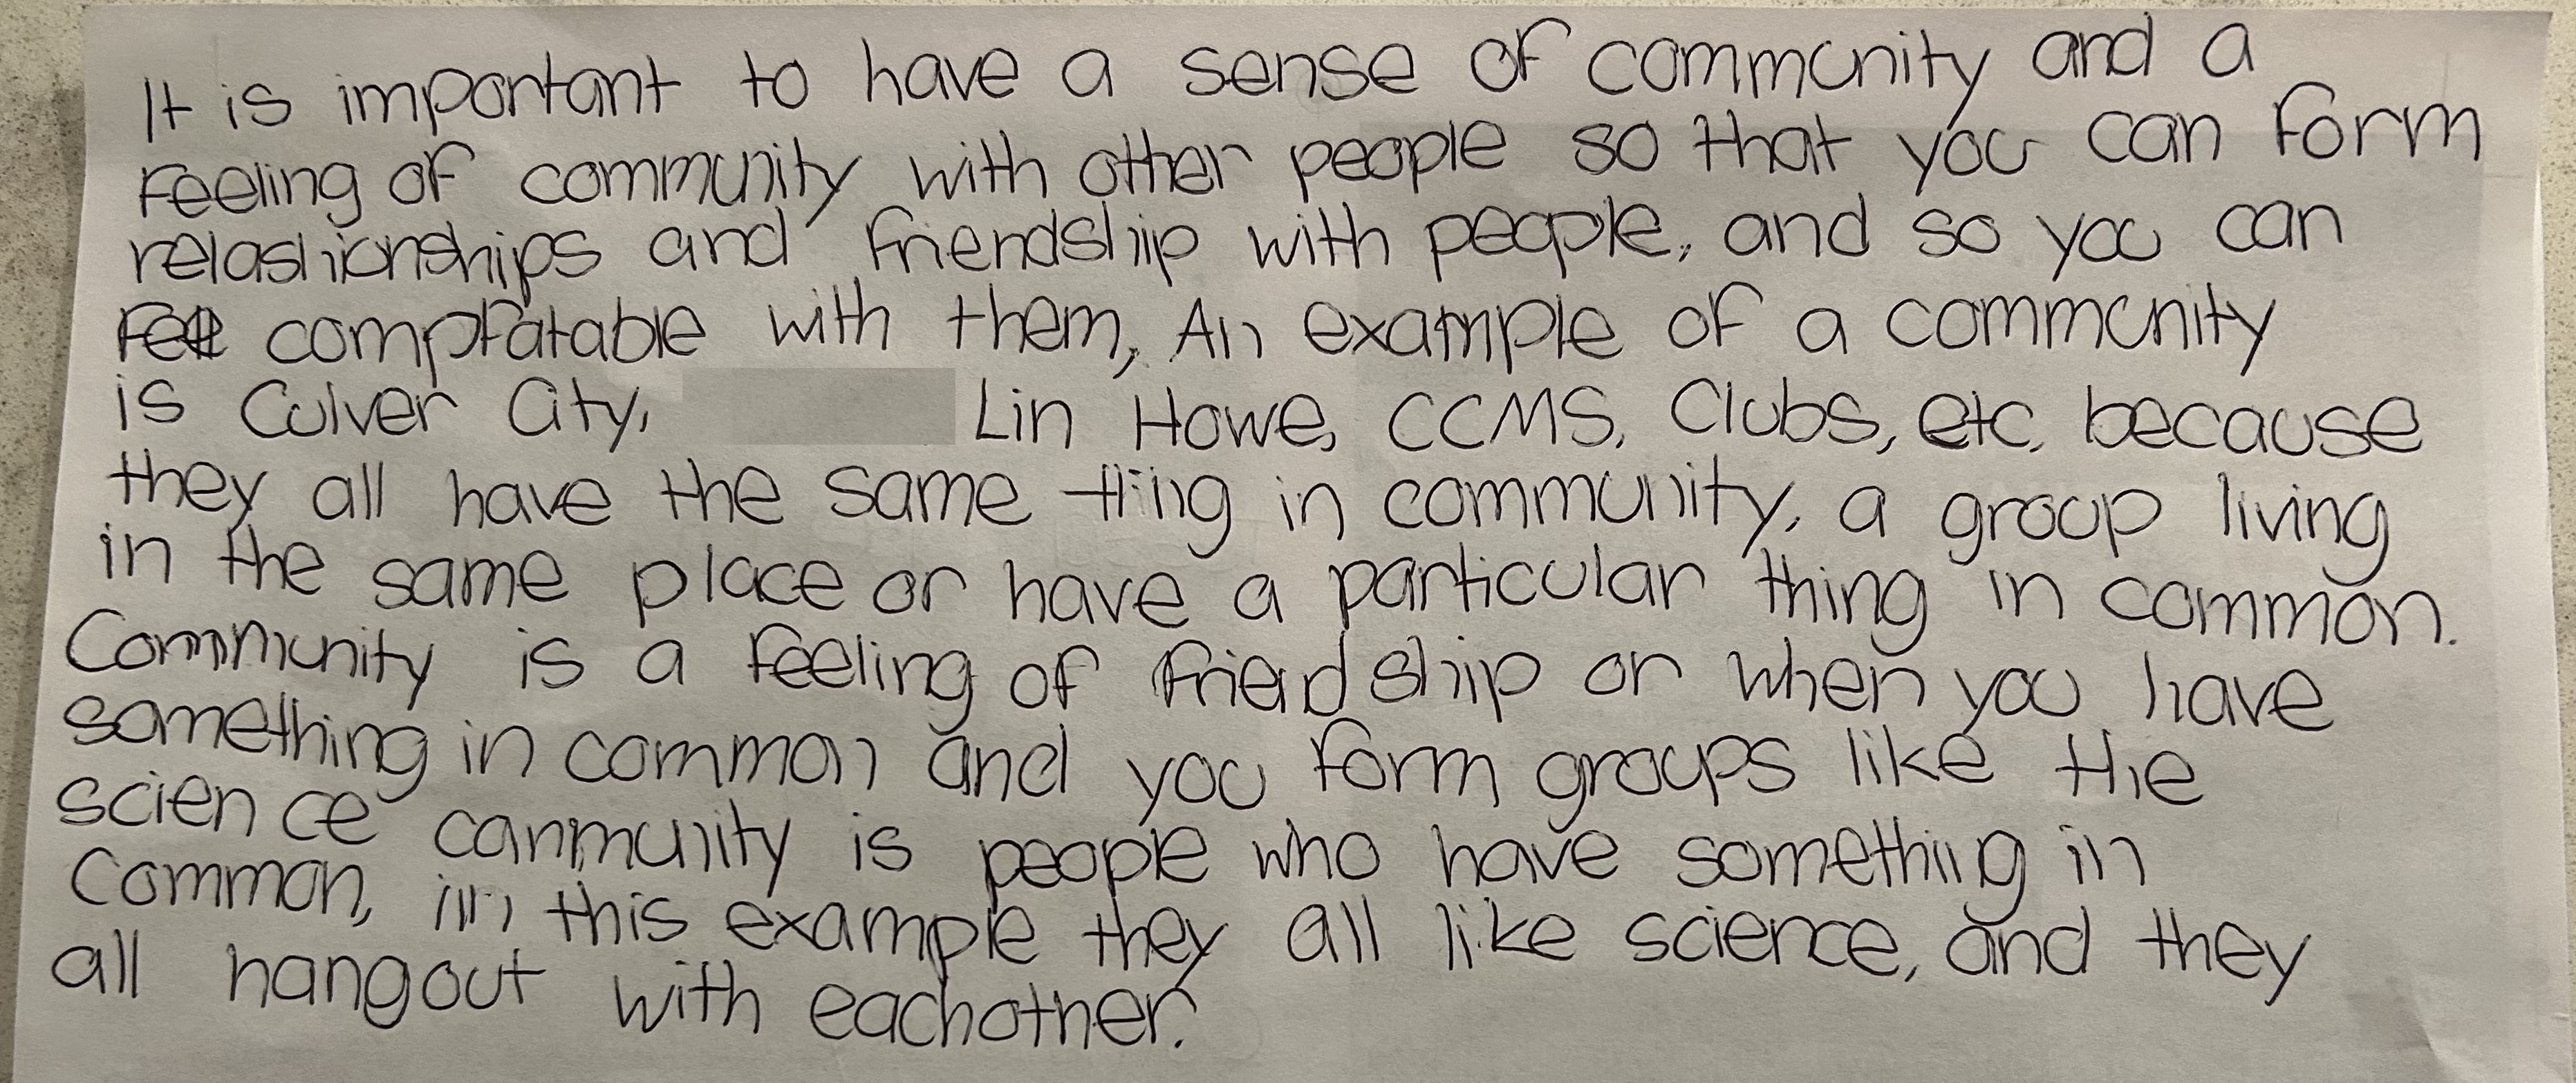 It is important to have a sense of community and a
feeling of community with other people so that you can form
relashionships and friendship with people, and so you can
compfatable with them, An example of a community
is Culver City, Lin Howe, CCMS, Clubs, etc. because
they all have the same thing in community, a group living
in the same place or have a particular thing in common.
Community is a feeling of friendship or when you have
something in common and you form groups like the
science canmunity is people who have something in
Common, in this example they all like science, and they
all hangout with eachother.